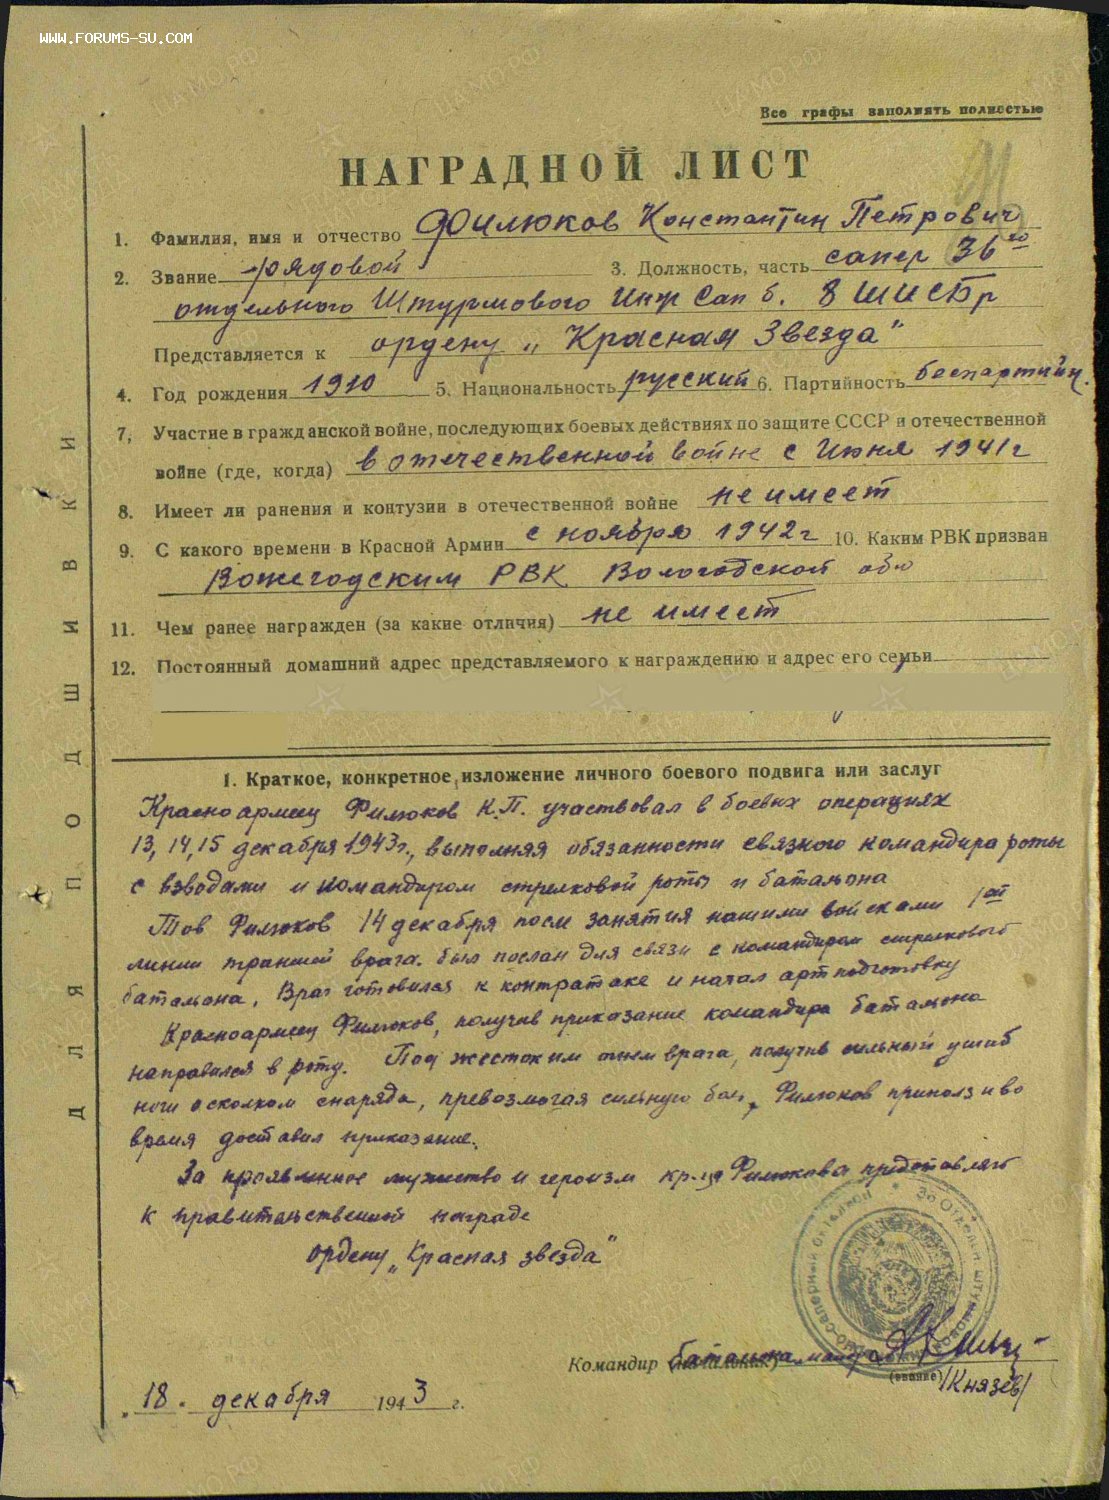 WWW.FORUMS-SU.COM
Все графы заполнять полностью
НАГРАДНОЙ ЛИСТ
1. Фамилия, имя и отчество Филюков Константин Петрович
2. Звание рядовой 3. Должность, часть сапер 36го
отдельного Штурмового Инж Сап б. 8 ШИСБр
Представляется к ордену „Красная Звезда"
4. Год рождения 1910 5. Национальность русский 6. Партийность беспартийн.
7, Участие в гражданской войне, последующих боевых действиях по защите СССР и отечественной
войне (где, когда) в отечественной войне с Июня 1941г
8. Имеет ли ранения и контузии в отечественной войне не имеет
9. С какого времени в Красной Армии с ноября 1942г 10. Каким РВК призван
Вожегодским РВК Вологодской обл
11. Чем ранее награжден (за какие отличия) не имеет
12. Постоянный домашний адрес представляемого к награждению и адрес его семьи
ДЛЯ ПОДШИВКИ
1. Краткое, конкретное изложение личного боевого подвига или заслуг
Красноармеец Филюков К.П. участвовал в боевых операциях
13, 14, 15 декабря 1943г., выполняя обязанности связного командира роты
с взводами и командиром стрелковой роты и батальона
Тов Филюков 14 декабря после занятия нашими войсками 1ой
линии траншей врага. был послан для связи с командиром стрелкового
батальона. Враг готовился к контратаке и начал артподготовку
Красноармеец Филюков, получив приказание командира батальона
направился в роту. Под жестоким огнем врага, получив сильный ушиб
ноги осколком снаряда, превозмогая сильную боль, Филюков приполз и во
время доставил приказание.
За проявленное мужество и героизм кр-ца Филюкова представляю
к правительственной награде
ордену „Красная звезда"
Командир батальона майор
(звание) /Князев/
18. декабря 1943 г.